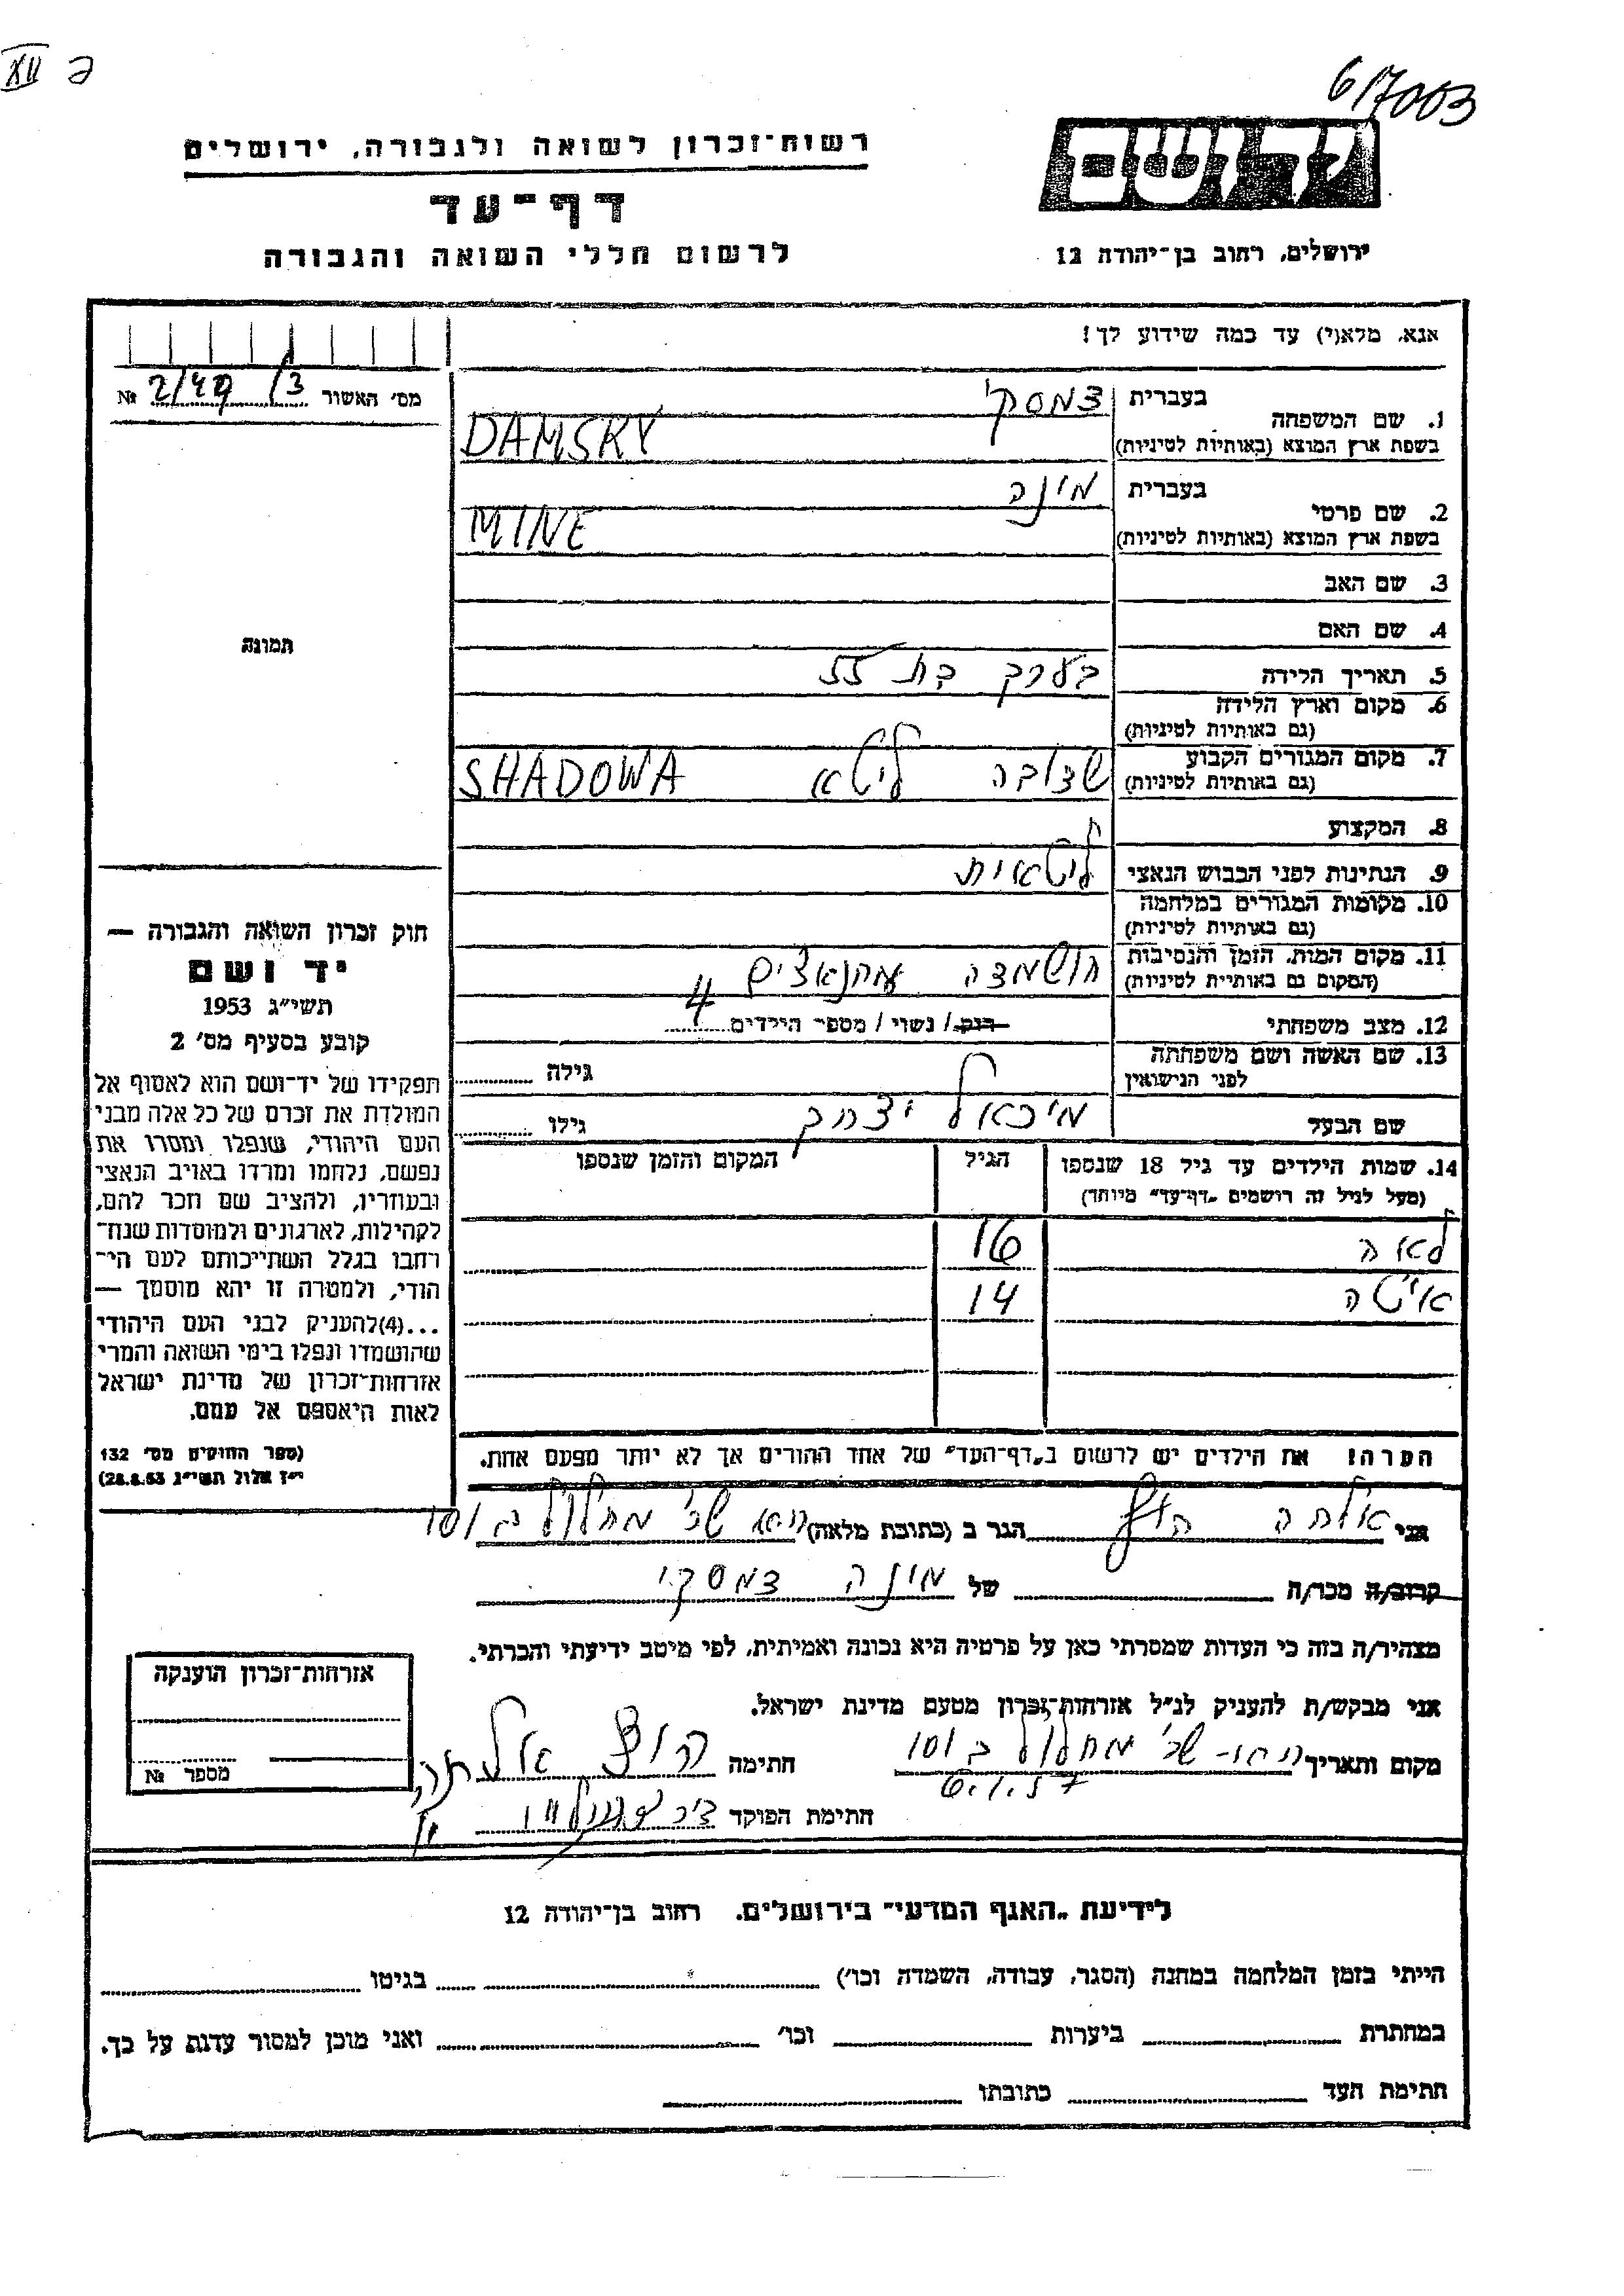 XII ב
617003
רשות־זכרון לשואה ולגבורה, ירושלים
דף־עד
לרשום חללי השואה והגבורה
יד ושם
ירושלים, רחוב בן־יהודה 12
אנא, מלא(י) עד כמה שידוע לך!
מס׳ האשור 3/ 2/49 №
1. שם המשפחה
בעברית דמסקי
בשפת ארץ המוצא (באותיות לטיניות) DAMSKY
2. שם פרטי
בעברית מינה
בשפת ארץ המוצא (באותיות לטיניות) MINE
3. שם האב
4. שם האם
תמונה
5. תאריך הלידה בערך בת 55
6. מקום וארץ הלידה
(גם באותיות לטיניות)
7. מקום המגורים הקבוע שדובה ליטא SHADOWA
(גם באותיות לטיניות)
8. המקצוע
9. הנתינות לפני הכבוש הנאצי ליטאית
10. מקומות המגורים במלחמה
(גם באותיות לטיניות)
11. מקום המות, הזמן והנסיבות הושמדה מהנאצים
(המקום גם באותיות לטיניות)
12. מצב משפחתי רוק/ נשוי/ מספר הילדים 4
13. שם האשה ושם משפחתה
לפני הנישואין
גילה
שם הבעל מיכאל יצחק גילו
14. שמות הילדים עד גיל 18 שנספו הגיל המקום והזמן שנספו
(מעל לגיל זה רושמים „דף־עד״ מיוחד)
לאה 16
איטה 14
חוק זכרון השואה והגבורה —
יד ושם
תשי״ג 1953
קובע בסעיף מס׳ 2
תפקידו של יד־ושם הוא לאסוף אל
המולדת את זכרם של כל אלה מבני
העם היהודי, שנפלו ומסרו את
נפשם, נלחמו ומרדו באויב הנאצי
ובעוזריו, ולהציב שם וזכר להם,
לקהילות, לארגונים ולמוסדות שנח־
רחבו בגלל השתייכותם לעם הי־
הודי, ולמטרה זו יהא מוסמך —
...(4)להעניק לבני העם היהודי
שהושמדו ונפלו בימי השואה והמרי
אזרחות־זכרון של מדינת ישראל
לאות היאספם אל עמם.
(ספר החוקים מס׳ 132
י״ז אלול תשי״ג 28.8.53)
הערה! את הילדים יש לרשום ב„דף־העד״ של אחד ההורים אך לא יותר מפעם אחת.
אני הגר ב (כתובת מלאה) שכ׳ מחלול ב 101
קרוב/ה מכר/ה של מינה דמסקי
מצהיר/ה בזה כי העדות שמסרתי כאן על פרטיה היא נכונה ואמיתית, לפי מיטב ידיעתי והכרתי.
אני מבקש/ת להעניק לנ״ל אזרחות־זכרון מטעם מדינת ישראל.
מקום ותאריך שכ׳ מחלול ב 101 חתימה
6.1.57
חתימת הפוקד
אזרחות־זכרון הוענקה
מספר №
לידיעת „האגף המדעי״ בירושלים, רחוב בן־יהודה 12
הייתי בזמן המלחמה במחנה (הסגר, עבודה, השמדה וכו׳) בגיטו
במחתרת ביערות וכו׳ ואני מוכן למסור עדות על כך.
חתימת העד כתובתו